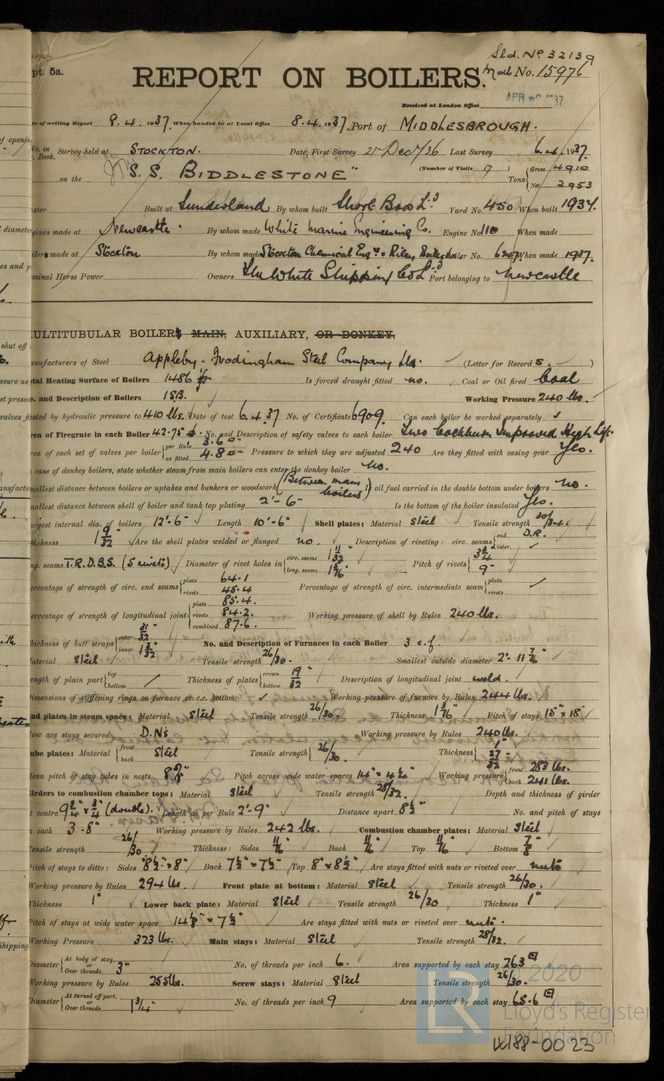 Sld. No. 32139
pt. 5a.
REPORT ON BOILERS.
No. 15976
Received at London Office
APR 1937
of writing Report 8.4.1937. When handed in at Local Office 8.4.1937. Port of MIDDLESBROUGH.
No. in Book. Survey held at STOCKTON. Date, First Survey 21 Dec 1936 Last Survey 6.4.1937.
on the S.S. BIDDLESTONE" (Number of Visits 9) Tons Gross 4910 Net 2953
Built at Sunderland By whom built Short Bros Ld. Yard No. 450 When built 1937.
made at Newcastle. By whom made White Marine Engineering Co. Engine No. 110 When made
made at Stockton By whom made Stockton Chemical Engrs & Riley Boilers Boiler No. When made 1937.
Nominal Horse Power Owners The White Shipping Co Ld. Port belonging to Newcastle
MULTITUBULAR BOILERS MAIN, AUXILIARY, OR DONKEY.
Manufacturers of Steel Appleby-Frodingham Steel Company Ltd. (Letter for Record S.)
Total Heating Surface of Boilers 1486 Is forced draught fitted no. Coal or Oil fired Coal
and Description of Boilers 1 S.B. Working Pressure 240 lbs.
tested by hydraulic pressure to 410 lbs. Date of test 6.4.37 No. of Certificate 6909. Can each boiler be worked separately
Area of Firegrate in each Boiler 42.75 No. and Description of safety valves to each boiler Two Cockburn Improved High Lift.
Area of each set of valves per boiler per Rule 3.60 as fitted 4.80 Pressure to which they are adjusted 240 Are they fitted with easing gear Yes.
In case of donkey boilers, state whether steam from main boilers can enter the donkey boiler No.
Smallest distance between boilers or uptakes and bunkers or woodwork (Between main boilers) oil fuel carried in the double bottom under boilers no.
Smallest distance between shell of boiler and tank top plating 2'-6" Is the bottom of the boiler insulated Yes.
Largest internal dia. of boilers 12'-6" Length 10'-6" Shell plates: Material Steel Tensile strength 30/34
Thickness 1 9/32 Are the shell plates welded or flanged no. Description of riveting: circ. seams end D.R. inter.
long. seams T.R.D.B.S. (5 rivets) Diameter of rivet holes in circ. seams 1 11/32 long. seams 1 5/16 Pitch of rivets 3 3/4 9"
Percentage of strength of circ. end seams plate 64.1 rivets 45.4 Percentage of strength of circ. intermediate seam plate rivets
Percentage of strength of longitudinal joint plate 85.4 rivets 84.2 combined 87.6 Working pressure of shell by Rules 240 lbs.
Thickness of butt straps outer 31/32 inner 1 3/32 No. and Description of Furnaces in each Boiler 3 c.f
Material Steel Tensile strength 26/30. Smallest outside diameter 2'-11 7/16"
Length of plain part top bottom Thickness of plates crown 19 bottom 32 Description of longitudinal joint weld.
Dimensions of stiffening rings on furnace or c.c. bottom Working pressure of furnace by Rules 244 lbs.
End plates in steam space: Material Steel Tensile strength 26/30 Thickness 1 3/16 Pitch of stays 15" x 18"
How are stays secured D.Ns Working pressure by Rules 240 lbs.
Tube plates: Material front back Steel Tensile strength 26/30 Thickness 1" 27/32
Mean pitch of stay tubes in nests 8 5/8 Pitch across wide water spaces 14" x Working pressure front 283 lbs. back 241 lbs.
Girders to combustion chamber tops: Material Steel Tensile strength 28/32. Depth and thickness of girder
at centre 9 1/4" x 3/4" (double). Length as per Rule 2'-9" Distance apart 8 1/2" No. and pitch of stays
in each 3-8" Working pressure by Rules 242 lbs. Combustion chamber plates: Material Steel
Tensile strength 26/30 Thickness: Sides 11/16 Back 11/16 Top 11/16 Bottom 7/8
Pitch of stays to ditto: Sides 8 1/2" x 8" Back 7 1/2" x 7 1/2" Top 8" x 8 1/2" Are stays fitted with nuts or riveted over nuts
Working pressure by Rules 294 lbs. Front plate at bottom: Material Steel Tensile strength 26/30.
Thickness 1" Lower back plate: Material Steel Tensile strength 26/30 Thickness 1"
Pitch of stays at wide water space 14 1/8" x 7 1/2" Are stays fitted with nuts or riveted over nuts.
Working Pressure 323 lbs. Main stays: Material Steel Tensile strength 28/32.
Diameter At body of stay, or Over threads. 3" No. of threads per inch 6. Area supported by each stay 263
Working pressure by Rules 255 lbs. Screw stays: Material Steel Tensile strength 26/30.
Diameter At turned off part, or Over threads 1 3/4" No. of threads per inch 9 Area supported by each stay 65.6
LR
© 2020
Lloyd's Register
Foundation
W188-0023